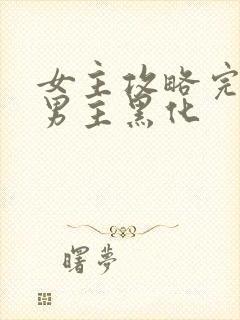 女主攻略完
男主黑化
曙夢